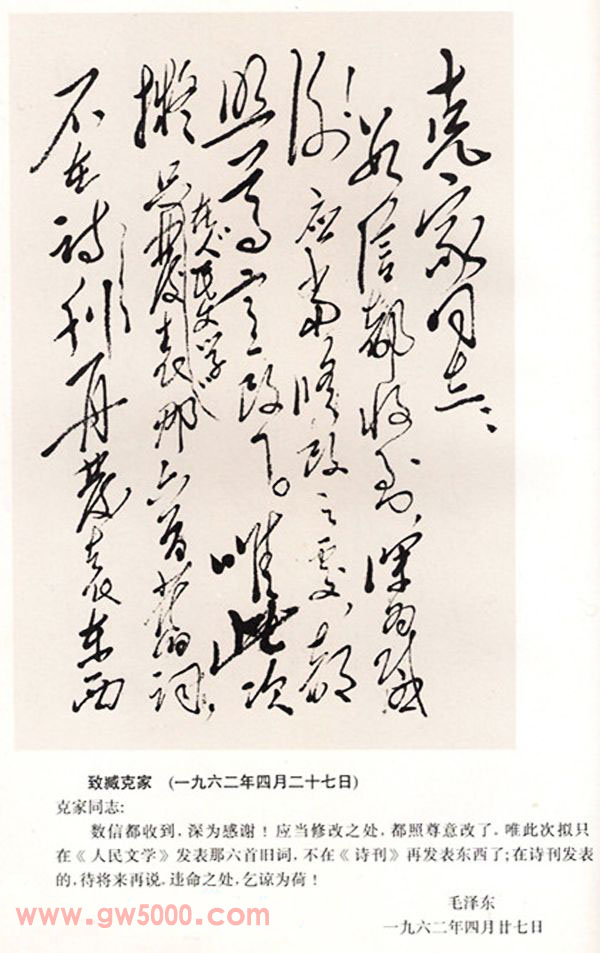 克家同志：
数信都收到，深为感
谢！应当修改之处，都
照尊意改了。唯此次
拟只在《人民文学》发表那六首旧词，
不在诗刊再发表东西
致臧克家 (一九六二年四月二十七日)
克家同志:
数信都收到，深为感谢！应当修改之处，都照尊意改了。唯此次拟只
在《人民文学》发表那六首旧词，不在《诗刊》再发表东西了;在诗刊发表
的，待将来再说，违命之处，乞谅为荷！
毛泽东
一九六二年四月廿七日
www.gw5000.com